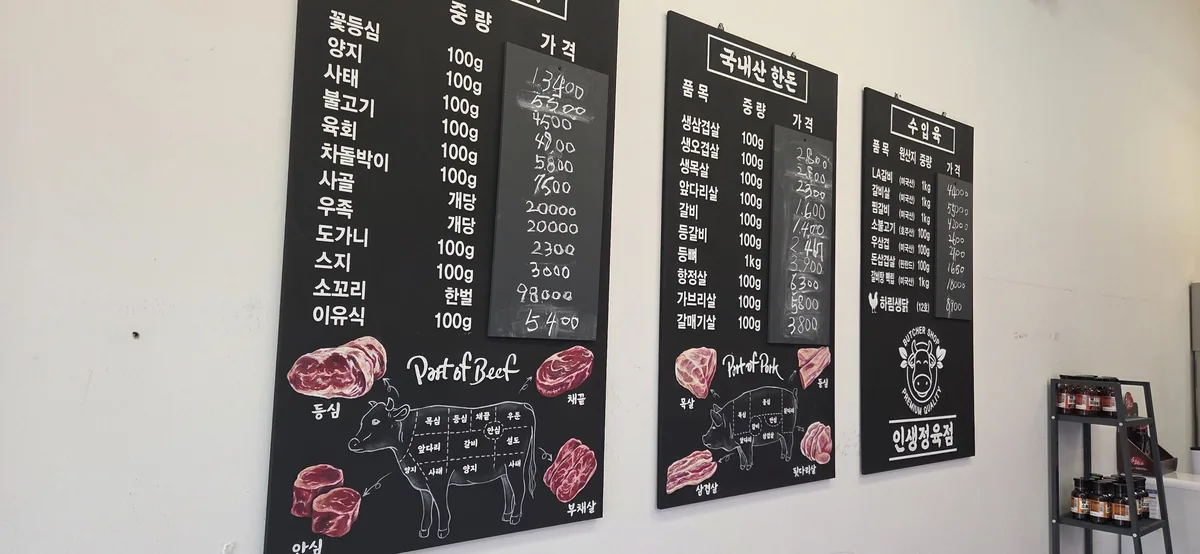 중량 가격
꽃등심 100g 13400
양지 100g 5500
사태 100g 4500
불고기 100g 4900
육회 100g 5800
차돌박이 100g 7500
사골 개당 20000
우족 개당 20000
도가니 100g 2300
스지 100g 3000
소꼬리 한벌 98000
이유식 100g 5400
Part of Beef
등심
채끝
목심 등심 채끝 우둔
안심
앞다리 갈비 설도
양지 사태 양지 사태
안심
부채살
국내산 한돈
품목 중량 가격
생삼겹살 100g 2800
생오겹살 100g 2800
생목살 100g 2300
앞다리살 100g 1600
갈비 100g 1400
등갈비 100g
등뼈 1kg 3900
항정살 100g 6300
가브리살 100g 5800
갈매기살 100g 3800
Part of Pork
목살
등심
삼겹살
뒷다리살
수입육
품목 원산지 중량 가격
LA갈비 (미국산) 1kg
갈비살 (미국산) 1kg
찜갈비 (미국산) 1kg
소불고기 (호주산) 100g 2600
우삼겹 (미국산) 100g
돈삼겹살 (핀란드) 100g
갈비탕 (미국산) 1kg 18000
하림생닭 (12호) 8900
BUTCHER SHOP
PREMIUM QUALITY
인생정육점